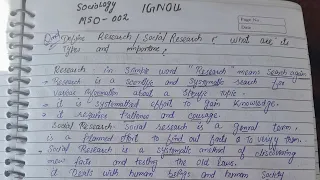 Sociology IGNOU
MSO-002
Page No.
Date
Define Research / Social Research & what are its
types and importance?
Research in Simple word "Research" means search again
• Research is a scientific and systematic search for
various information about a specific topic.
• it is systematised effort to gain knowledge.
• it requires patience and courage.
Social Research - Social research is a general term,
is a planned effort to find out facts & to verify them.
• Social Research is a systematic method of discovering
new facts and testing the old laws.
it Deals with human beings and human society